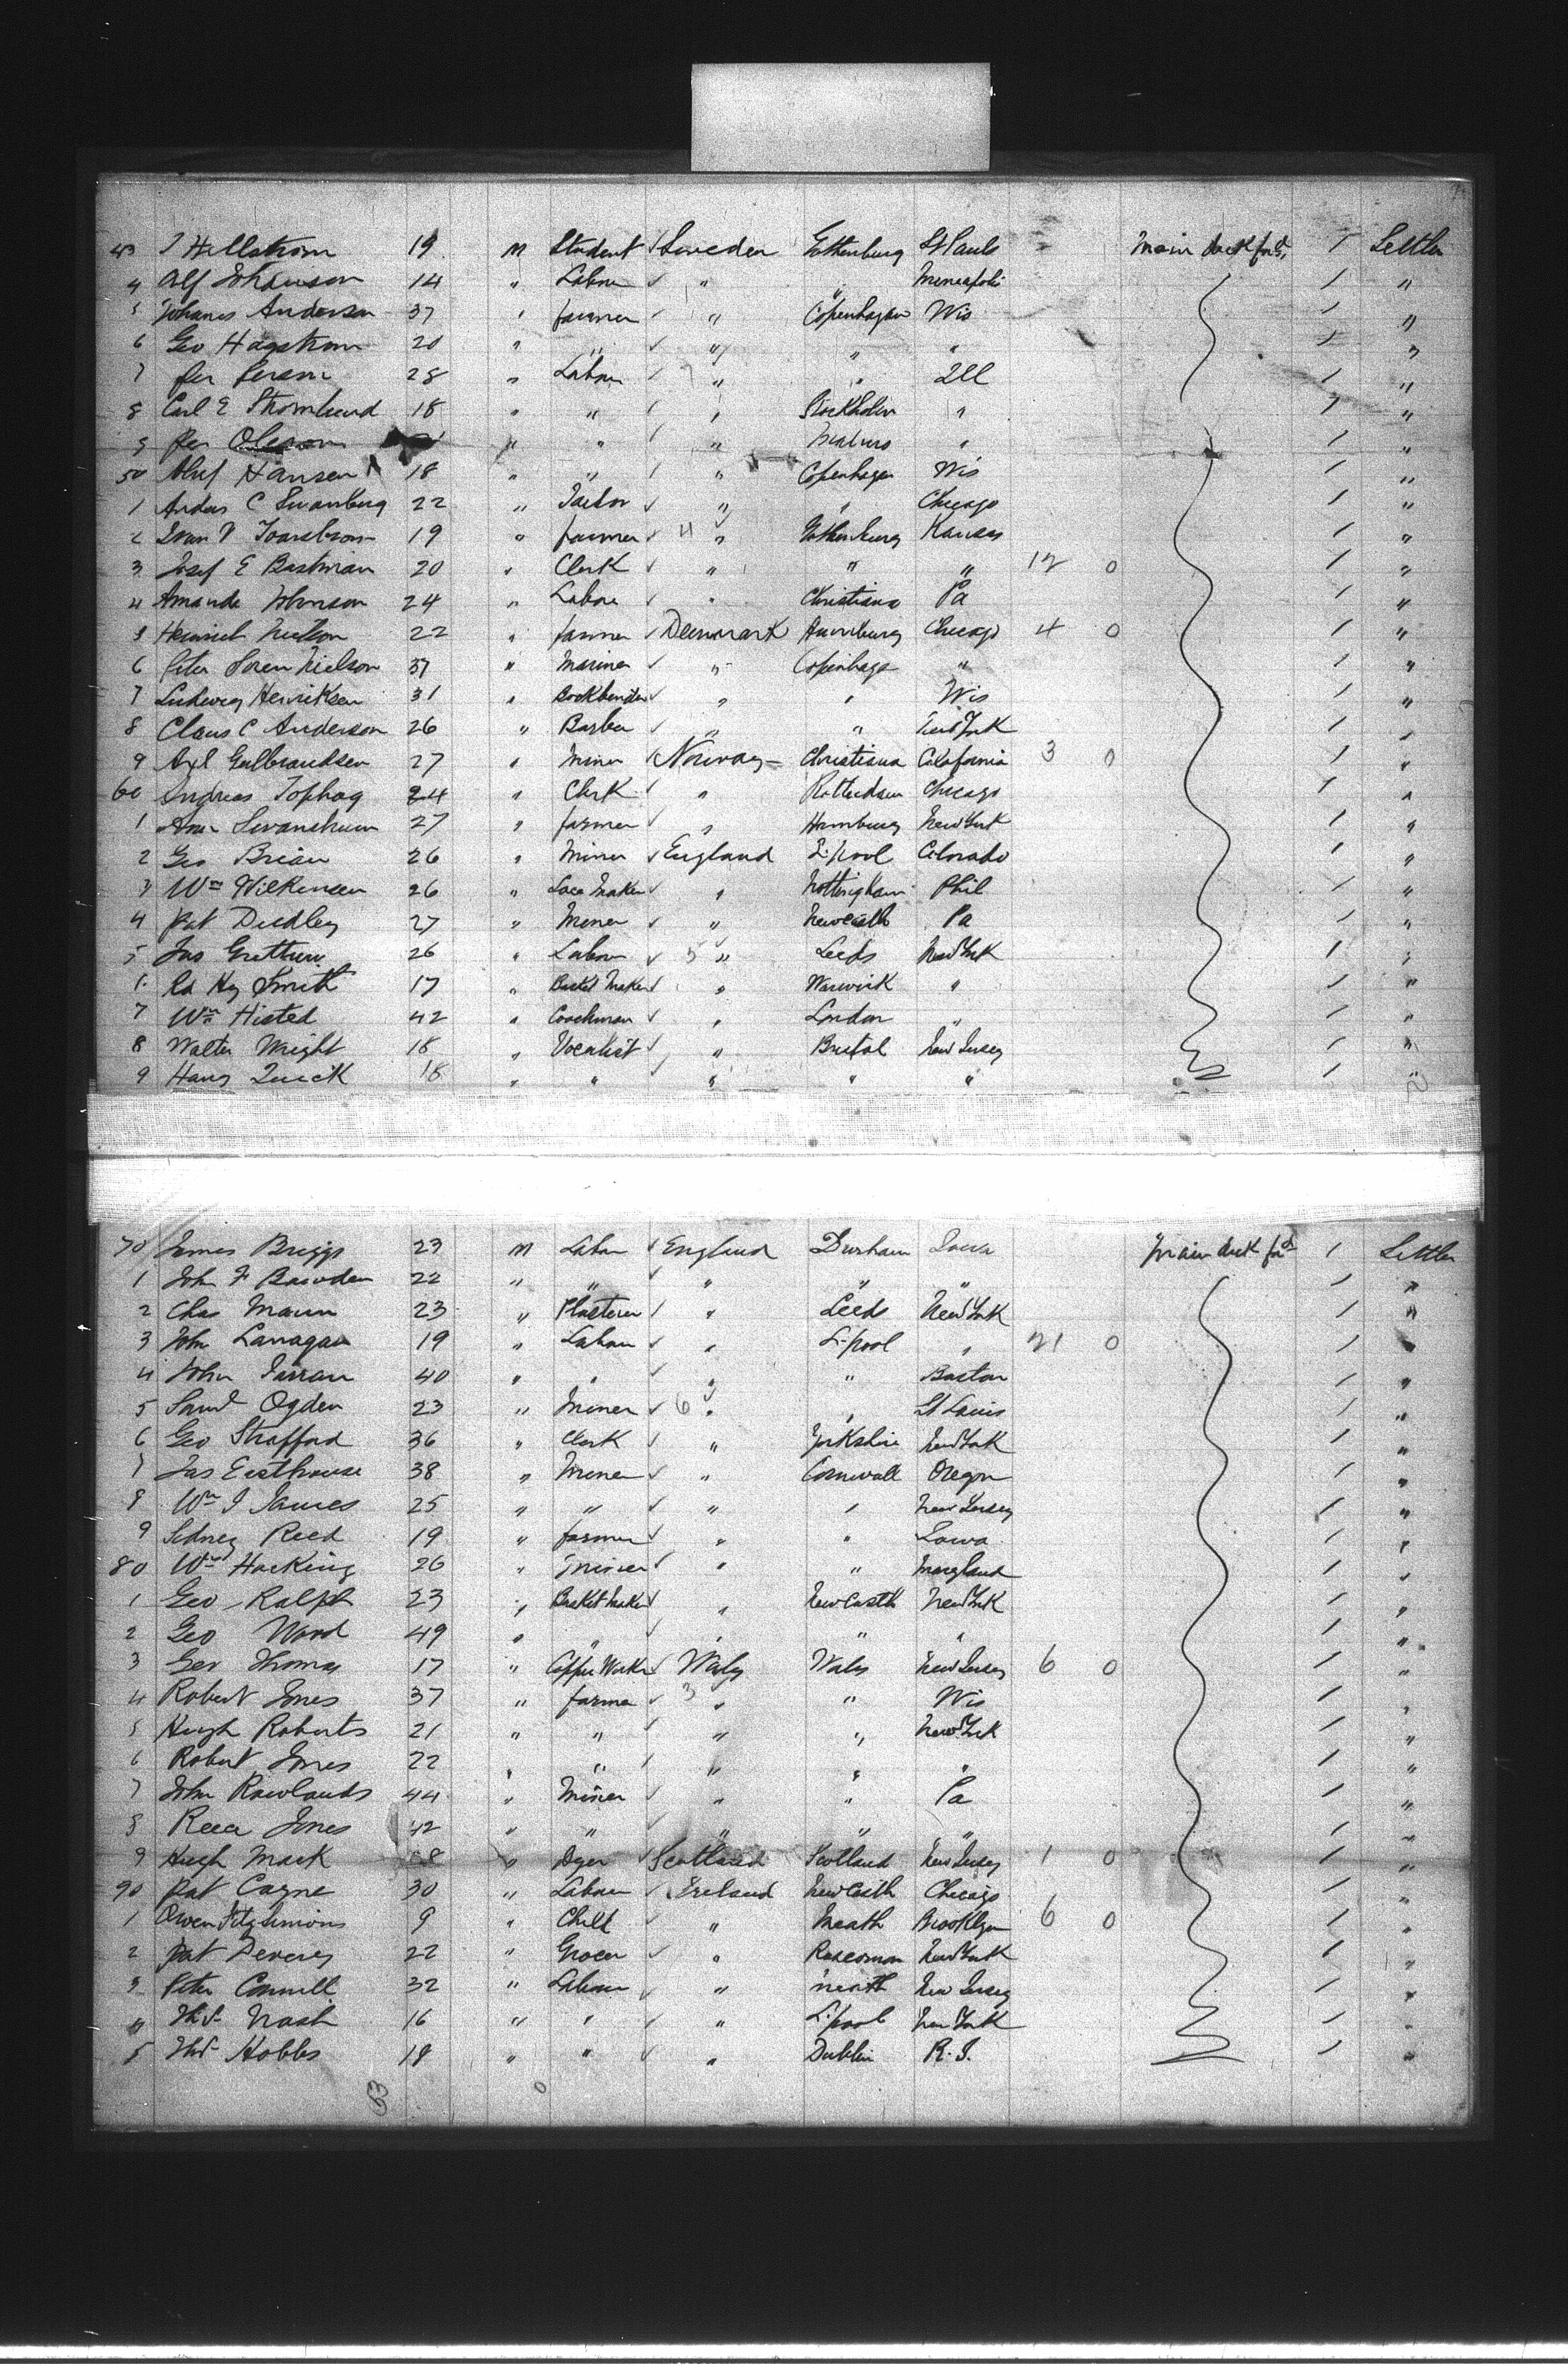 43 J Hellstrom 19 M Student ✓ Sweden Gothenburg St Pauls Main deck ford 1 Settler
4 Alf Johanson 14 Labor ✓ " " Minneapolis / "
5 Johanes Anderson 37 " farmer ✓ " Copenhagen Wis / "
6 Geo Hagstrom 20 " " ✓ " " " / "
7 Per Person 28 " Labor / " " Ill / "
8 Carl E Stromlund 18 " " / " Stockholm " / "
9 Per Oleson " " / " " / "
50 Oluf Hansen 18 " " / " Copenhagen Wis / "
1 Anders C Swanberg 22 " Tailor ✓ " " Chicago / "
2 19 " farmer ✓ 4 " Gothenburg Kansas / "
3 Josef E Bastman 20 " Clerk ✓ " " " 12 0 / "
4 Amanda Johnson 24 " Labor ✓ " Christiana Pa / "
5 Heinrich 22 " farmer ✓ Denmark Chicago 4 0 / "
6 Peter Soren Nielson 37 " Mariner ✓ " Copenhage " / "
7 Ludwig Henriksen 31 " Bookbinder ✓ " " Wis / "
8 Claus C Anderson 26 " Barber ✓ " " New York / "
9 Axl Gulbrandsen 27 " Miner ✓ Norway Christiana California 3 0 / "
60 Andreas Tophog 24 " Clerk ✓ " Rotterdam Chicago / "
1 27 " farmer ✓ " Hamburg New York / "
2 Geo Brian 26 " Miner ✓ England L'pool Colorado / "
3 Wm Wilkinson 26 " Lace Maker ✓ " Nottingham Phil / "
4 Pat Dudley 27 " Miner ✓ " Newcastle Pa / "
5 Jas 26 " Labor ✓ 5 " Leeds New York / "
6 Hy Smith 17 " Basket Maker ✓ " Warwick " / "
7 Wm Histed 42 " Coachman ✓ " London " / "
8 Walter Wright 18 " Vocalist ✓ " Bristol New Jersey / "
9 Harry Quick 18 " " " " " / "
70 James Briggs 23 M Labor ✓ England Durham Iowa Main deck ford 1 Settler
1 John F Bawden 22 " " ✓ " " " / "
2 Chas Mann 23 " Plasterer / " Leeds New York / "
3 John Lanagan 19 " Labour ✓ " L'pool " 21 0 / "
4 John Farran 40 " " ✓ " " Boston / "
5 Saml Ogden 23 " Miner ✓ 6 " " St Louis / "
6 Geo Strafford 36 " Clerk ✓ " Yorkshire New York / "
7 Jas Easthouse 38 " Miner ✓ " Cornwall Oregon / "
8 Wm J James 25 " " ✓ " " New Jersey / "
9 Sidney Reed 19 " farmer ✓ " " Iowa / "
80 Wm Hocking 26 " Miner ✓ " " Maryland / "
1 Geo Ralph 23 " Basket Maker ✓ " Newcastle New York / "
2 Geo Ward 49 " " ✓ " " " / "
3 Geo Thomas 17 " Copper Worker ✓ Wales Wales New Jersey 6 0 / "
4 Robert Jones 37 " farmer ✓ 3 " " Wis / "
5 Hugh Roberts 21 " " ✓ " " New York / "
6 Robert Jones 22 " " / " " " / "
7 John Rowlands 44 " Miner ✓ " " Pa / "
8 Reece Jones 42 " " ✓ " " " / "
9 Hugh Mack " Dyer ✓ Scotland Scotland New Jersey 1 0 / "
90 Pat Cayne 30 " Labour ✓ Ireland Newcastle Chicago / "
1 Owen Fitzsimons 9 " Child ✓ " Meath Brooklyn 6 0 / "
2 Pat Deverey 22 " Grocer ✓ " Roscoman New York / "
3 Peter Connell 32 " Labour ✓ " Meath New Jersey / "
4 Thos Nash 16 " " ✓ " L'pool New York / "
5 Thos Hobbs 18 " " ✓ " Dublin R. I. / "
63 0